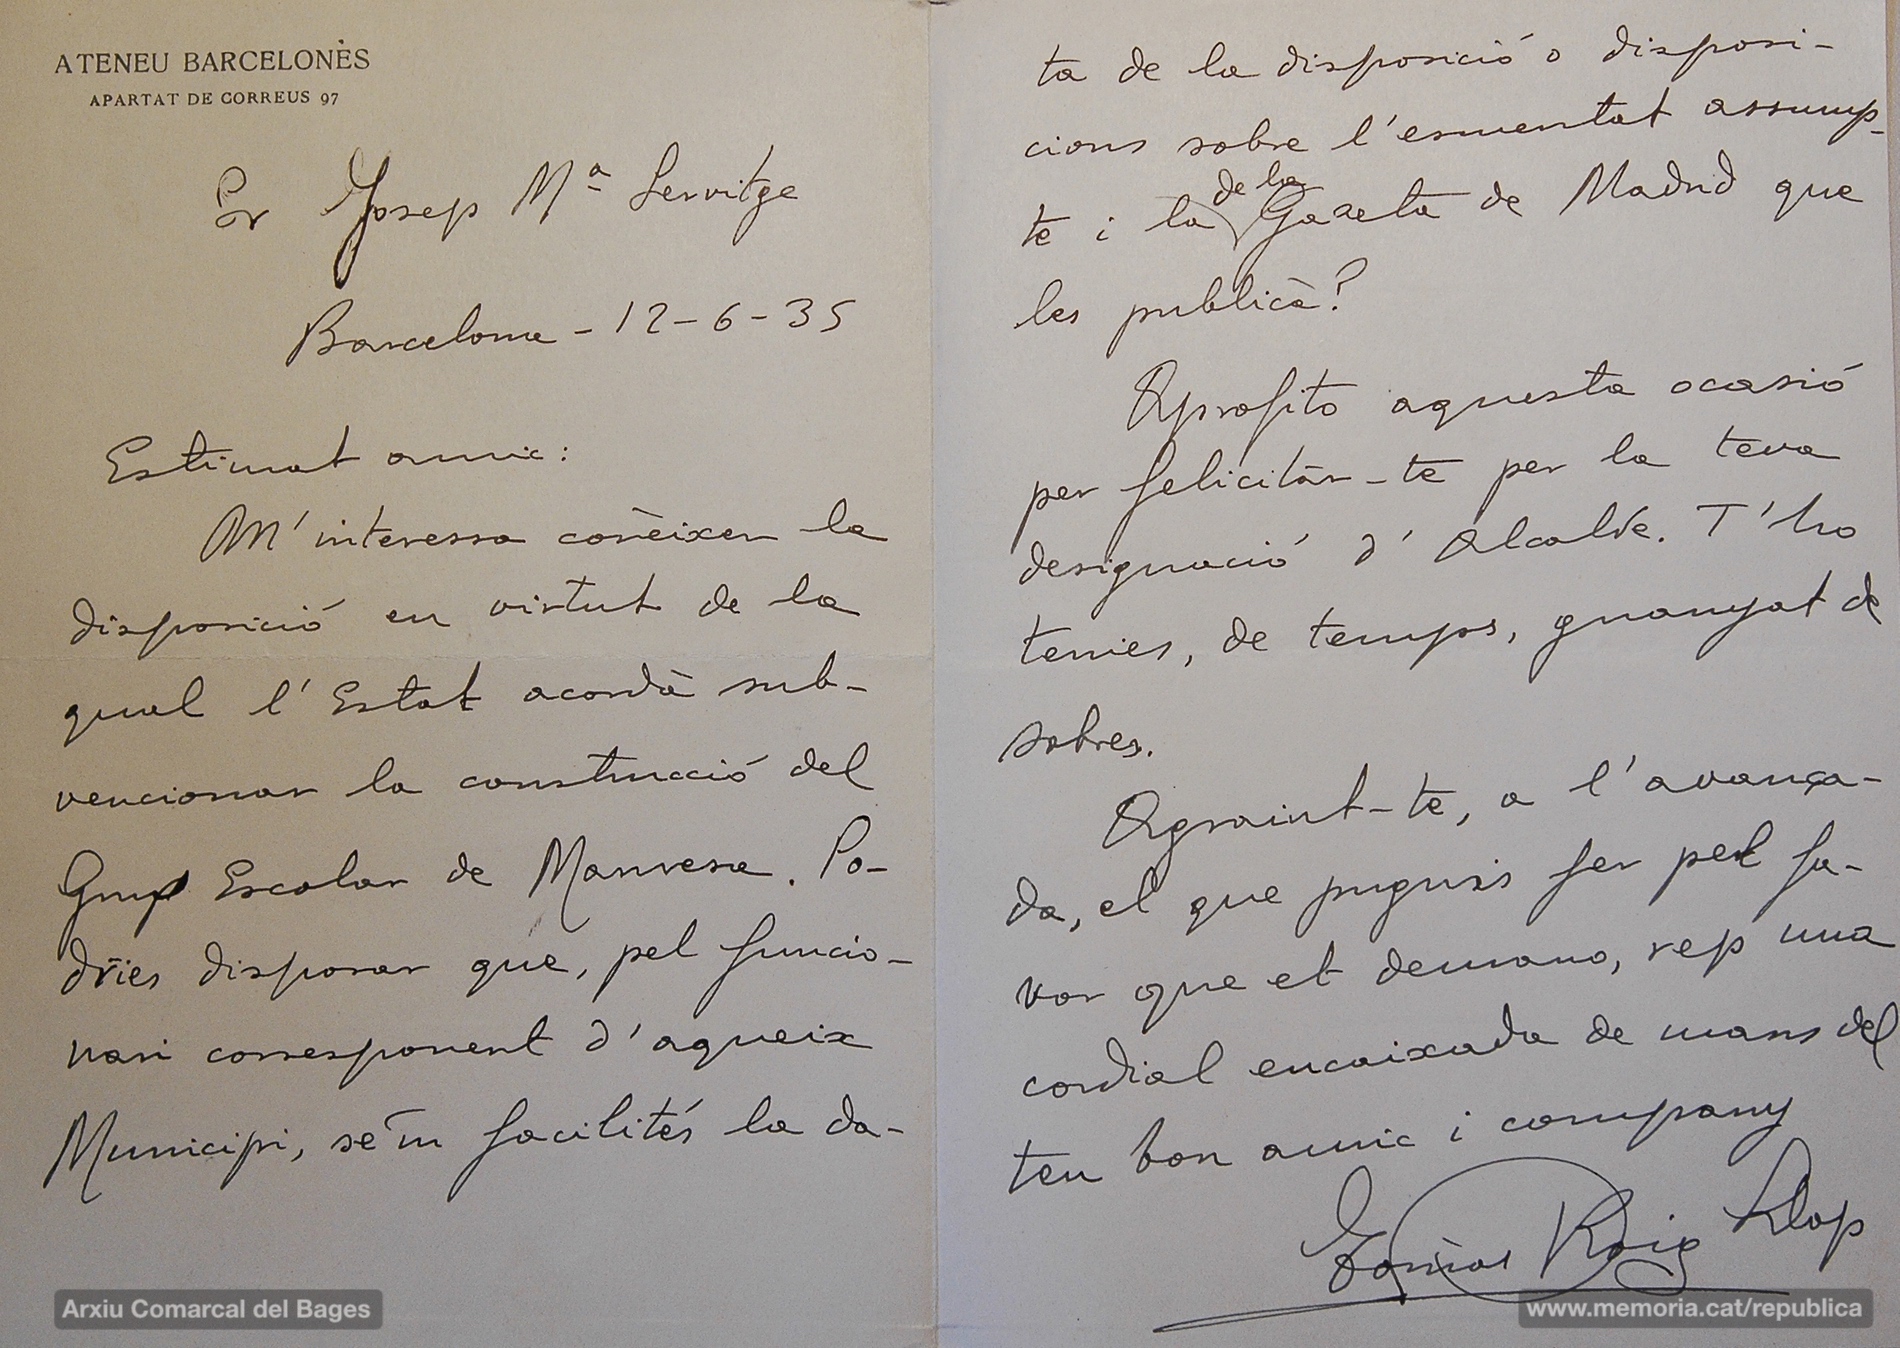 ATENEU BARCELONÈS
APARTAT DE CORREUS 97
Sr Josep Mª Servitge
Barcelona - 12-6-35
Estimat amic:
M'interessa conèixer la
disposició en virtut de la
qual l'Estat acordà sub-
vencionar la construcció del
Grup Escolar de Manresa. Po-
dries disposar que, pel funcio-
nari corresponent d'aqueix
Municipi, se'm facilités la da-
ta de la disposició o disposi-
cions sobre l'esmentat assump-
te i la de la Gazeta de Madrid que
les publicà?
Aprofito aquesta ocasió
per felicitàr-te per la teva
designació d'Alcalde. T'ho
tenies, de temps, guanyat de
sobres.
Agraint-te, a l'avança-
da, el que puguis fer pel fa-
vor que et demano, rep una
cordial encaixada de mans del
teu bon amic i company
Tomàs Roig Llop
Arxiu Comarcal del Bages
www.memoria.cat/republica